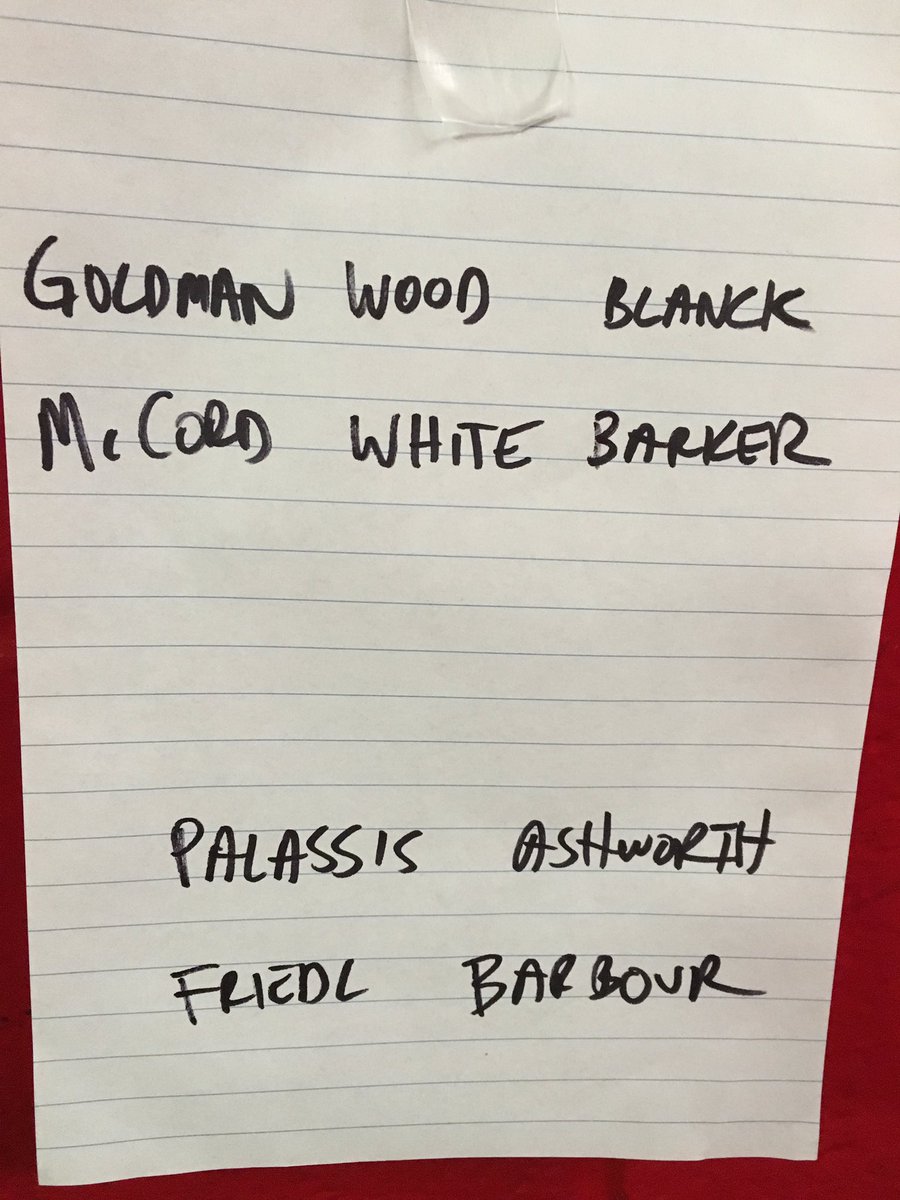 GOLDMAN WOOD BLANCK
McCORD WHITE BARKER
PALASSIS ASHWORTH
FRIEDL BARBOUR